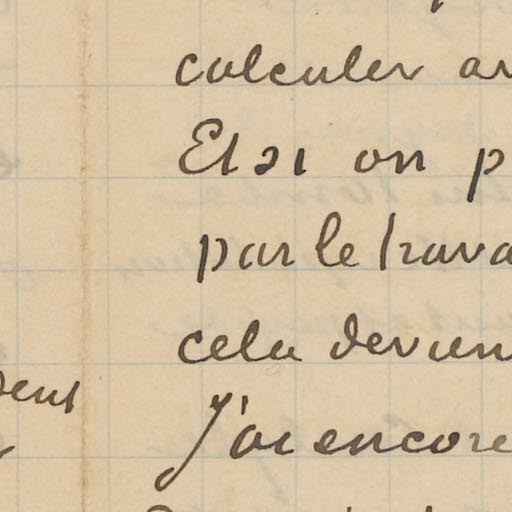 calculer
Et si on p
par le trava
cela devien
J'ai encore